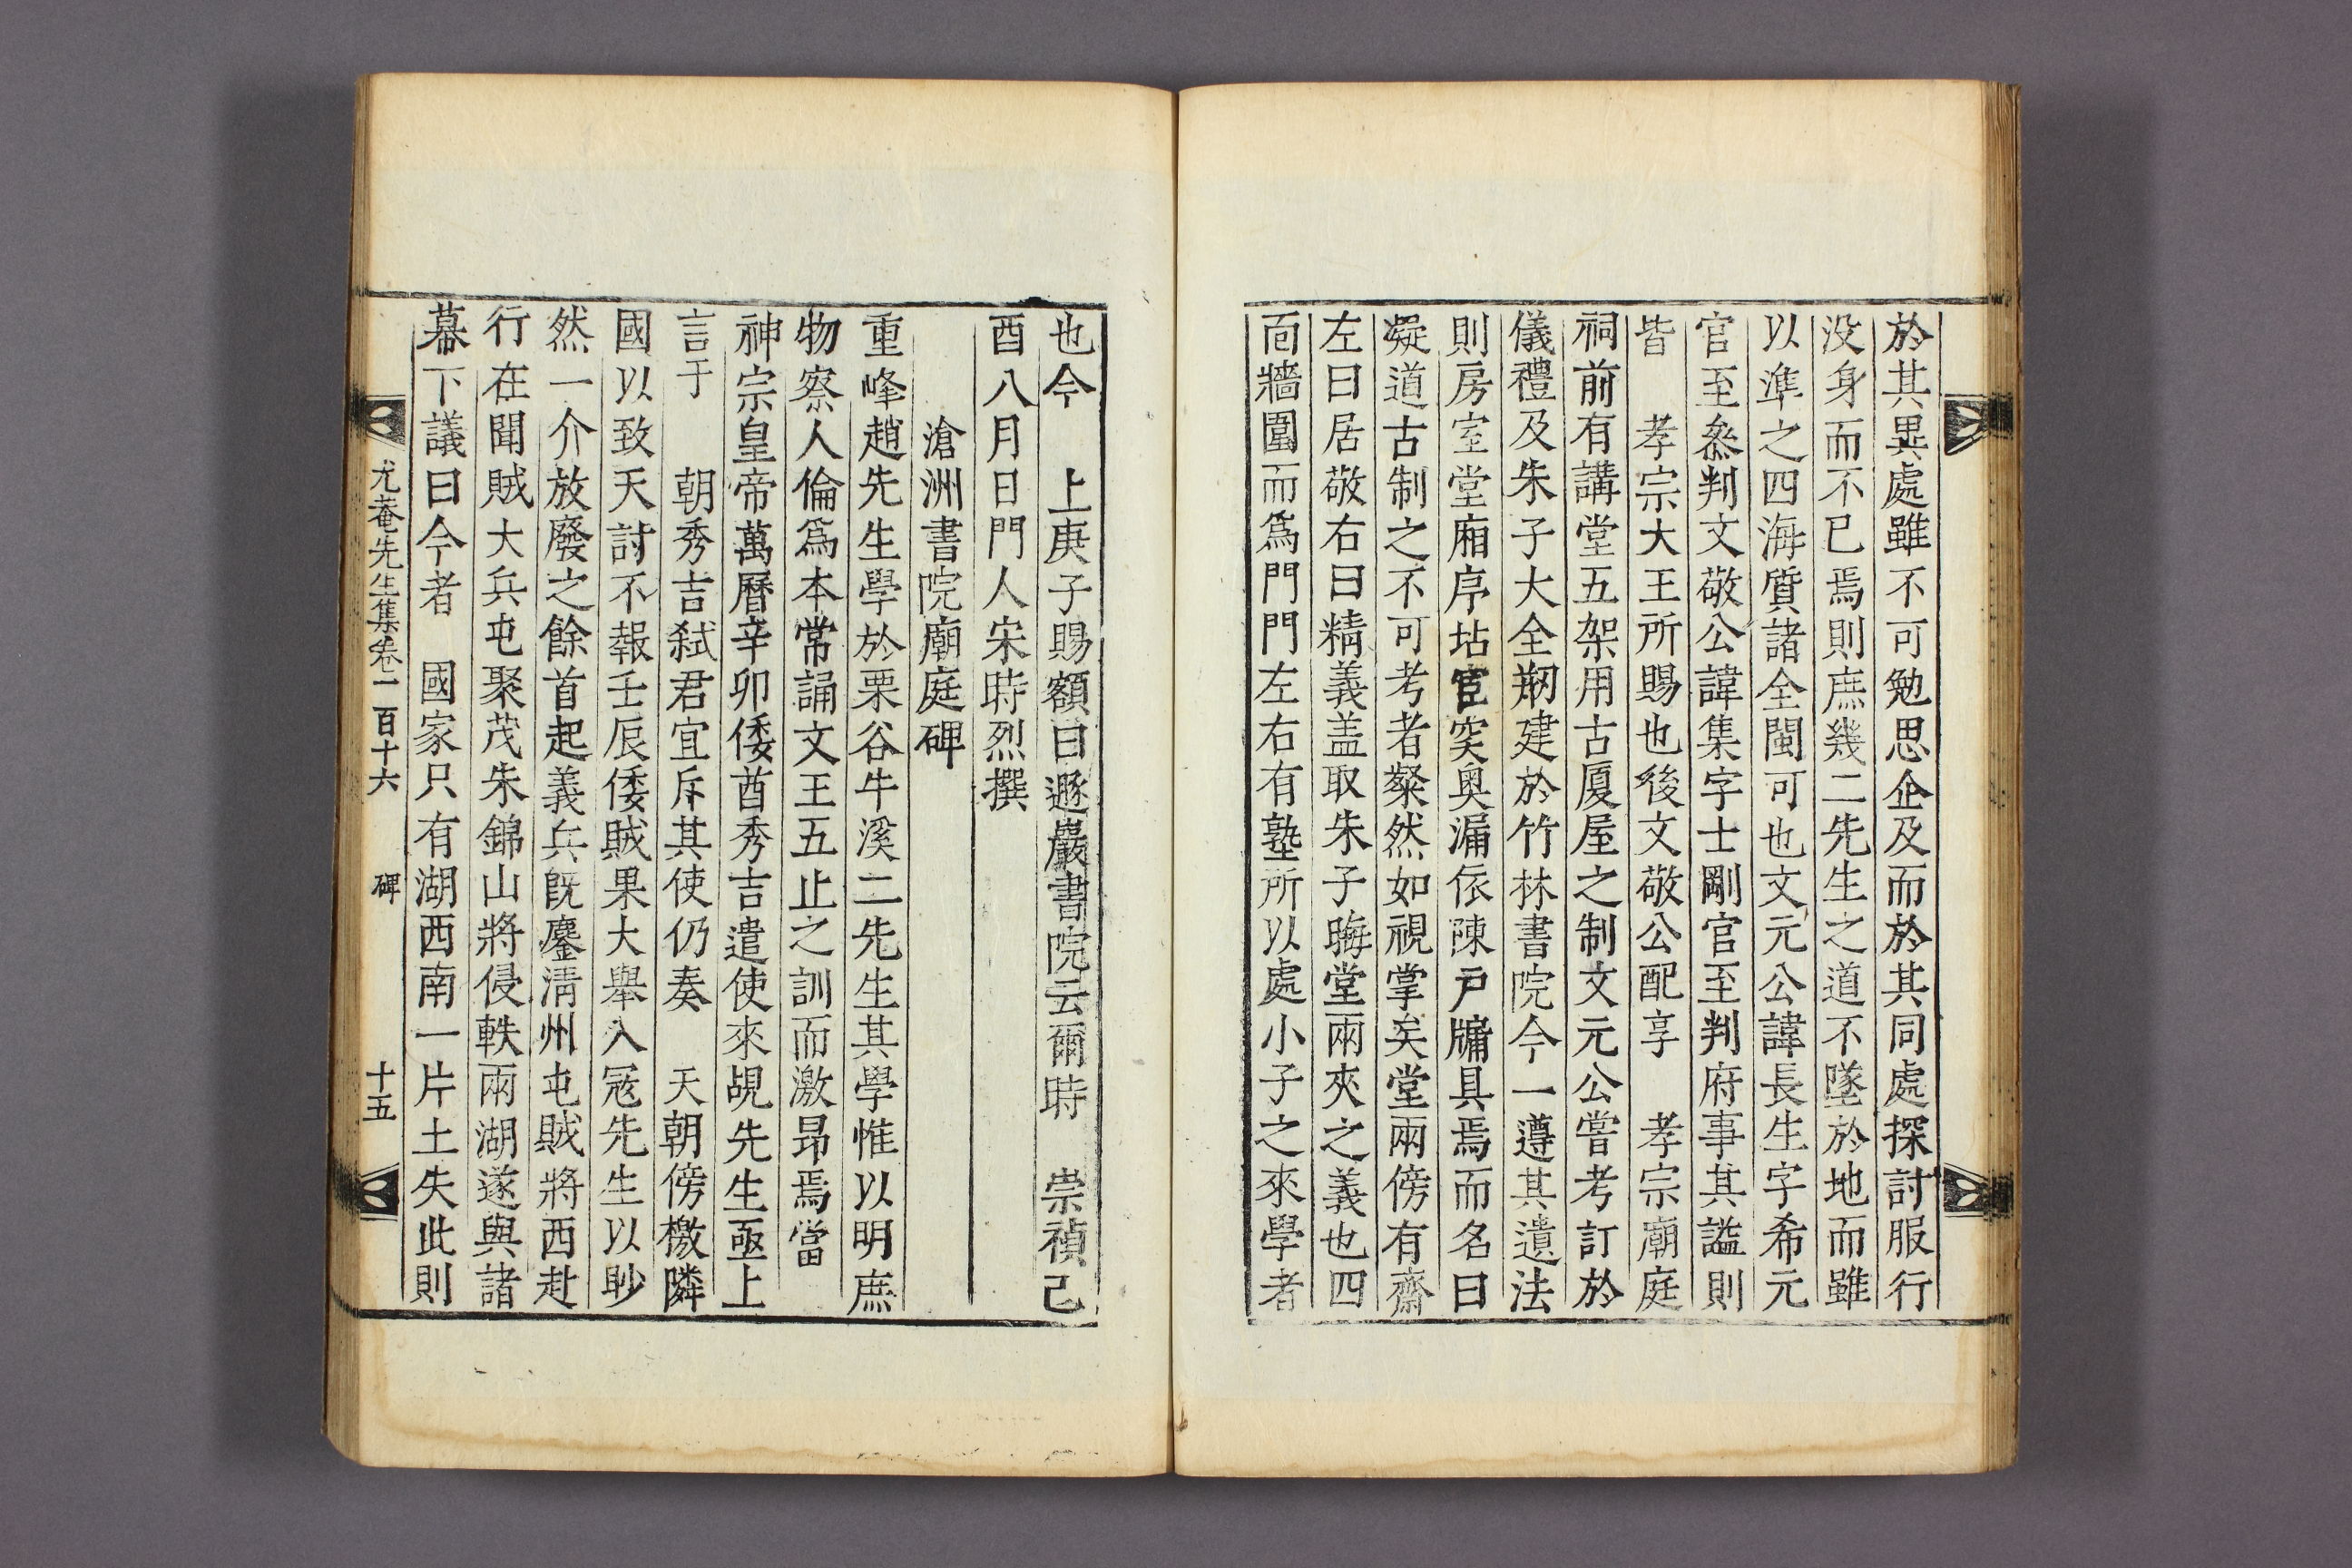 於其異處雖不可勉思企及而於其同處探討服行
没身而不已焉則庶幾二先生之道不墜於地而雖
以準之四海質諸全閩可也文元公諱長生字希元
官至叅判文敬公諱集字士剛官至判府事其謚則
皆　孝宗大王所賜也後文敬公配享　孝宗廟庭
祠前有講堂五架用古厦屋之制文元公嘗考訂於
儀禮及朱子大全剏建於竹林書院今一遵其遺法
則房室堂廂序坫宧窔奥漏依陳戸牖具焉而名曰
凝道古制之不可考者粲然如視掌矣堂兩傍有齋
左曰居敬右曰精義盖取朱子晦堂兩夾之義也四
靣牆圍而爲門門左右有塾所以處小子之來學者
也今　上庚子賜額曰遯巖書院云爾時　崇禎己
酉八月日門人宋時烈撰
滄洲書院廟庭碑
重峰趙先生學於栗谷牛溪二先生其學惟以明庶
物察人倫爲本常誦文王五止之訓而激昂焉當
神宗皇帝萬曆辛卯倭酋秀吉遣使來覘先生亟上
言于　朝秀吉弑君宜斥其使仍奏　天朝傍檄隣
國以致天討不報壬辰倭賊果大舉入冦先生以眇
然一介放廢之餘首起義兵旣鏖淸州屯賊將西赴
行在聞賊大兵屯聚茂朱錦山將侵軼兩湖遂與諸
幕下議曰今者　國家只有湖西南一片土失此則
尤菴先生集卷一百十六　碑　十五